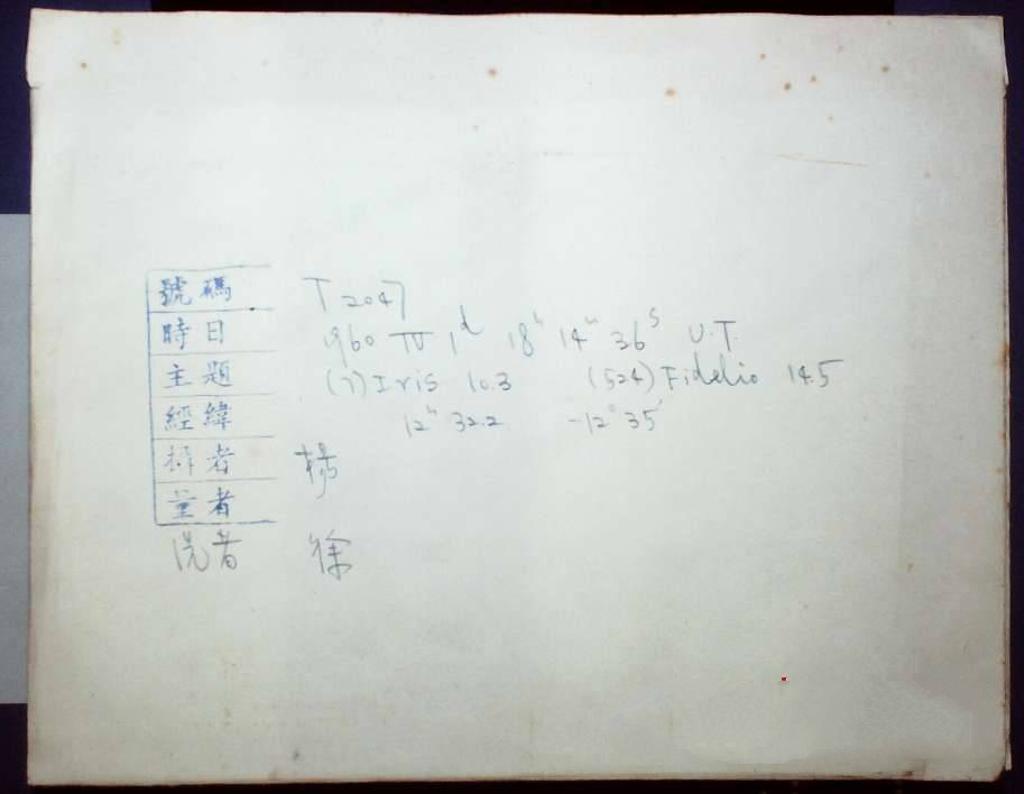 號碼 T 2047
時日 1960 IV 1ᵈ 18ʰ 14ᵐ 36ˢ U.T.
主題 (7) Iris 10.3 (524) Fidelio 14.5
經緯 12ʰ 32.2 -12° 35′
攝者 楊
量者
洗者 徐